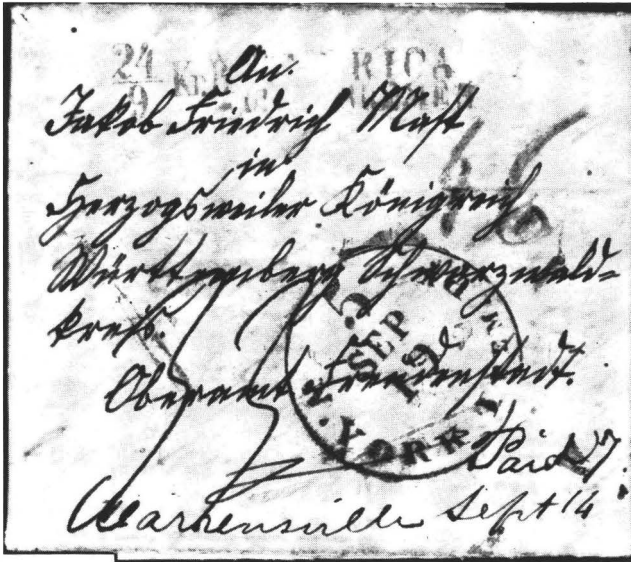 24
9
RICA
An
Jakob Friedrich Mast
in
Herzogsweiler Königreich
Württemberg Schwarzwald=
kreis.
SEP
19
Oberamt Freudenstadt.
YORK
Paid 7
Warrensville Sept 14